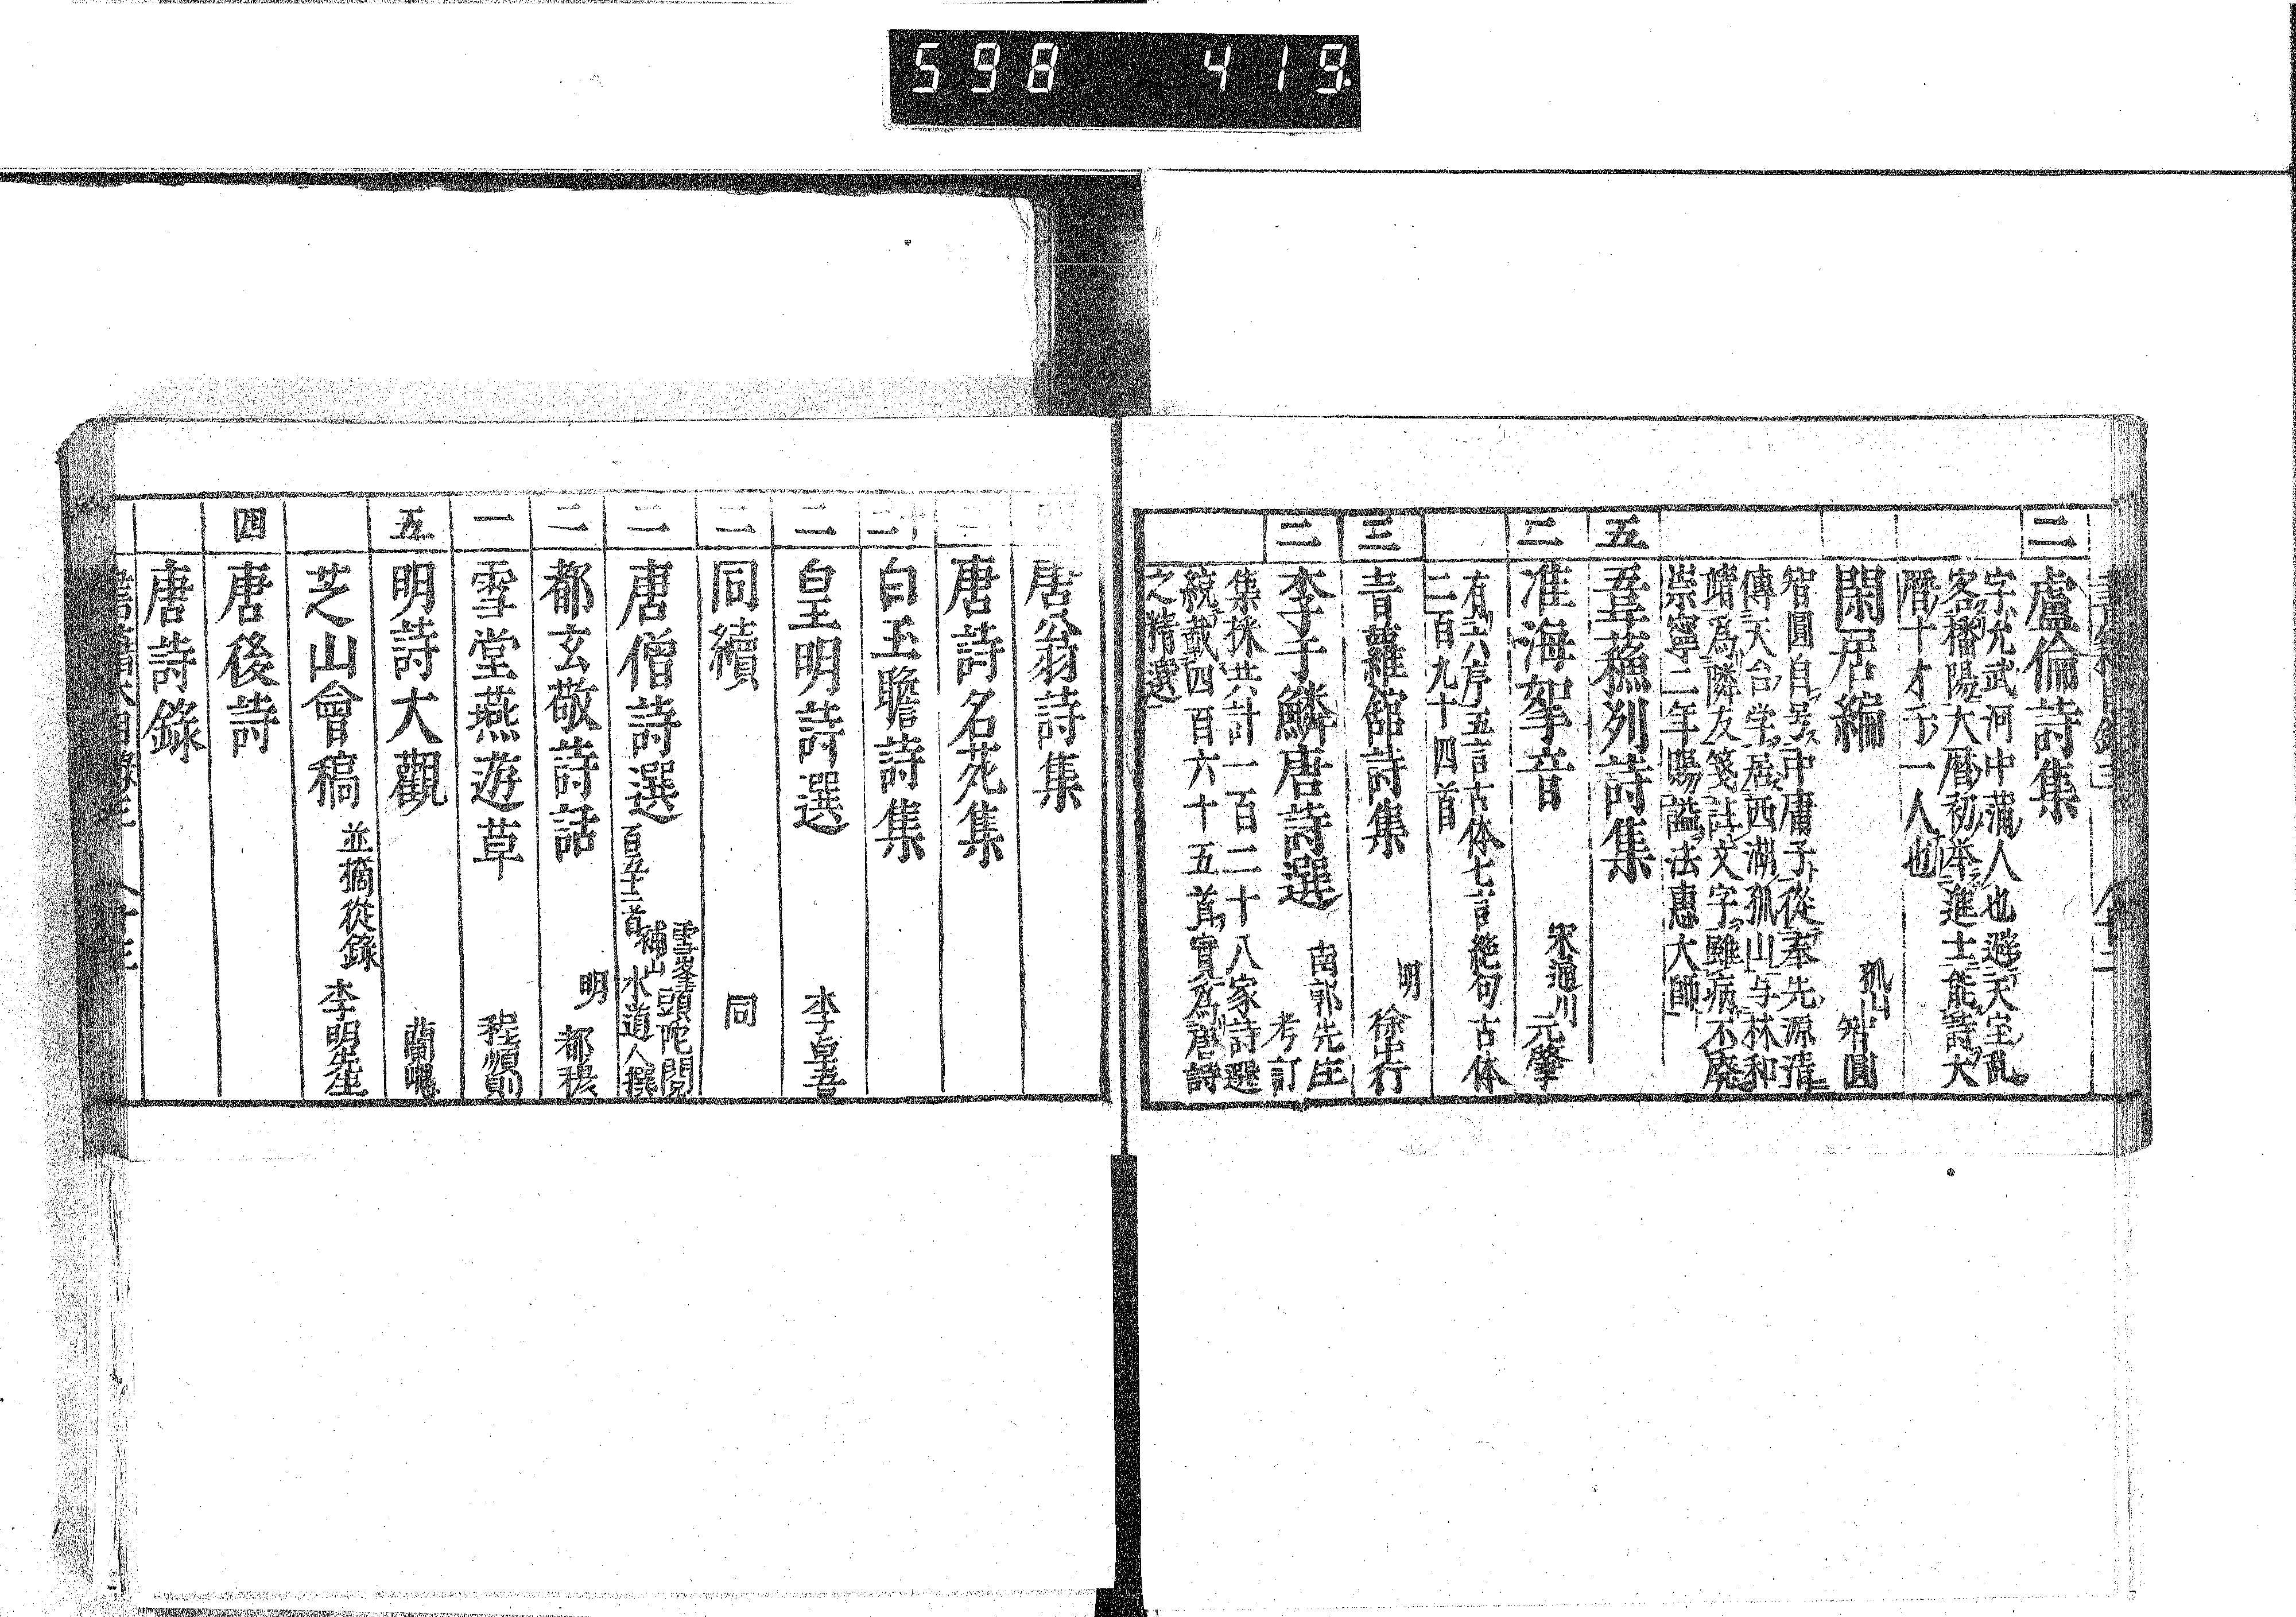 598 419.
二 盧倫詩集
字允武河中蒲人也避天宝乱
客播陽大曆初举進士能詩大
曆十才子一人也
閑居編 孤山 智圓
智圓自号中庸子從奉先源清
傳天台学居西湖孤山与林和
靖為隣友箋註文字雖病不廃
崇寧二年賜謚法惠大師
五 吾蘓列詩集
二 淮海挐音 宋通川 元肇
有六序五言古体七言絶句古体
二百九十四首
三 青蘿舘詩集 明 徐中行
二 李于鱗唐詩選 南郭先生 考訂
集採共計一百二十八家詩選
統載四百六十五首實為唐詩
之精選
唐翁詩集
唐詩名花集
二 白玉瞻詩集
二 皇明詩選 李皐吾
二 同續 同
二 唐僧詩選 百五十二首 雪峯頭陀閲 補山水道人撰
二 都玄敬詩話 明 都穆
一 雪堂燕遊草 程順則
五 明詩大觀 蘭嵎
芝山會稿 並摘從錄 李明先生
四 唐後詩
唐詩錄